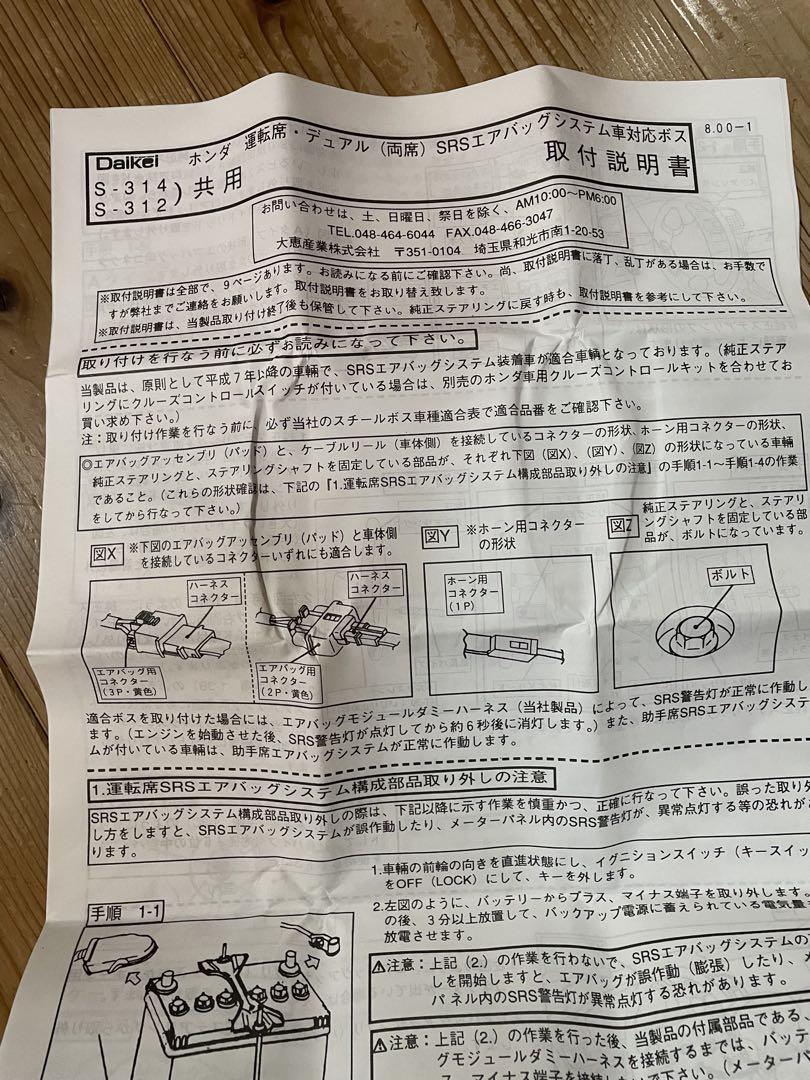 8.00-1
Daikei ホンダ 運転席・デュアル（両席）SRSエアバッグシステム車対応ボス
S-314
S-312
)共用
取付説明書
お問い合わせは、土、日曜日、祭日を除く、AM10:00～PM6:00
TEL.048-464-6044 FAX.048-466-3047
大恵産業株式会社 〒351-0104 埼玉県和光市南1-20-53
※取付説明書は全部で、9ページあります。お読みになる前にご確認下さい。尚、取付説明書に落丁、乱丁がある場合は、お手数で
すが弊社までご連絡をお願いします。取付説明書をお取り替え致します。
※取付説明書は、当製品取り付け終了後も保管して下さい。純正ステアリングに戻す時も、取付説明書を参考にして下さい。
取り付けを行なう前に必ずお読みになって下さい。
当製品は、原則として平成7年以降の車輌で、SRSエアバッグシステム装着車が適合車輌となっております。（純正ステア
リングにクルーズコントロールスイッチが付いている場合は、別売のホンダ車用クルーズコントロールキットを合わせてお
買い求め下さい。）
注：取り付け作業を行なう前に、必ず当社のスチールボス車種適合表で適合品番をご確認下さい。
◎エアバッグアッセンブリ（パッド）と、ケーブルリール（車体側）を接続しているコネクターの形状、ホーン用コネクターの形状、
純正ステアリングと、ステアリングシャフトを固定している部品が、それぞれ下図（図X）、（図Y）、（図Z）の形状になっている車輌
であること。（これらの形状確認は、下記の『1.運転席SRSエアバッグシステム構成部品取り外しの注意』の手順1-1～手順1-4の作業
をしてから行なって下さい。）
図X
※下図のエアバッグアッセンブリ（パッド）と車体側
を接続しているコネクターいずれにも適合します。
ハーネス
コネクター
エアバッグ用
コネクター
（3P・黄色）
ハーネス
コネクター
エアバッグ用
コネクター
（2P・黄色）
図Y
※ホーン用コネクター
の形状
ホーン用
コネクター
（1P）
図Z
純正ステアリングと、ステアリ
ングシャフトを固定している部
品が、ボルトになっています。
ボルト
適合ボスを取り付けた場合には、エアバッグモジュールダミーハーネス（当社製品）によって、SRS警告灯が正常に作動し
ます。（エンジンを始動させた後、SRS警告灯が点灯してから約6秒後に消灯します。）また、助手席SRSエアバッグシステ
ムが付いている車輌は、助手席エアバッグシステムが正常に作動します。
1.運転席SRSエアバッグシステム構成部品取り外しの注意
SRSエアバッグシステム構成部品取り外しの際は、下記以降に示す作業を慎重かつ、正確に行なって下さい。誤った取り外
し方をしますと、SRSエアバッグシステムが誤作動したり、メーターパネル内のSRS警告灯が、異常点灯する等の恐れがあ
ります。
手順 1-1
1.車輌の前輪の向きを直進状態にし、イグニションスイッチ（キースイッ
をOFF（LOCK）にして、キーを外します。
2.左図のように、バッテリーからプラス、マイナス端子を取り外します。
の後、3分以上放置して、バックアップ電源に蓄えられている電気量を
放電させます。
⚠注意：上記（2.）の作業を行わないで、SRSエアバッグシステムの
しを開始しますと、エアバッグが誤作動（膨張）したり、メ
パネル内のSRS警告灯が異常点灯する恐れがあります。
⚠注意：上記（2.）の作業を行った後、当製品の付属部品である、
グモジュールダミーハーネスを接続するまでは、バッテ
ス、マイナス端子を接続しないで下さい。（メーターパ